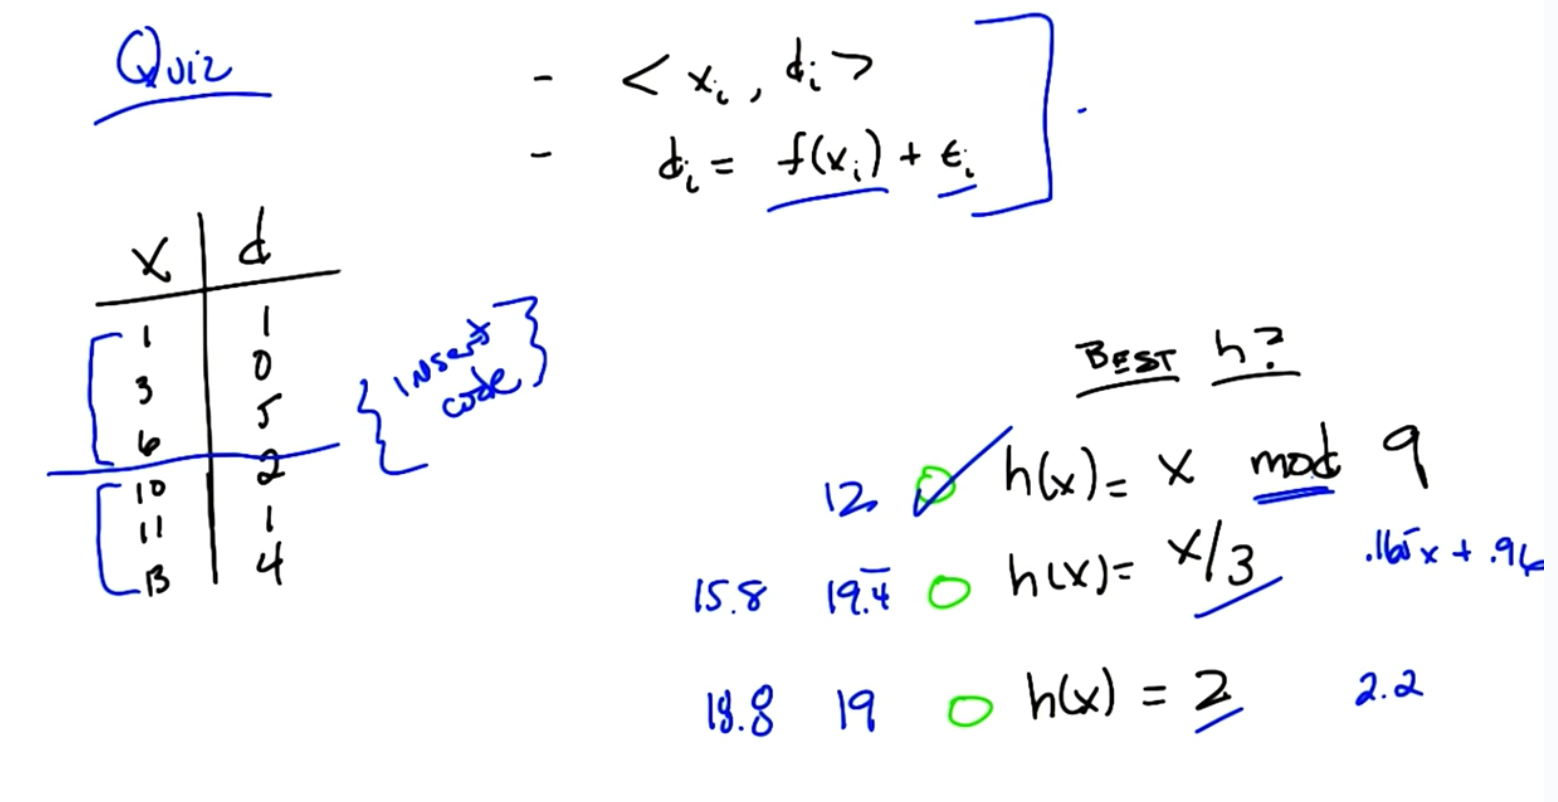 Quiz
- < xᵢ , dᵢ >
- dᵢ = f(xᵢ) + εᵢ
x d
1 1
3 0
6 5
10 2
11 1
13 4
{ insert
code }
BEST h?
12 h(x) = x mod 9
15.8 19.4̅ h(x) = x/3 .165x + .96
18.8 19 h(x) = 2 2.2